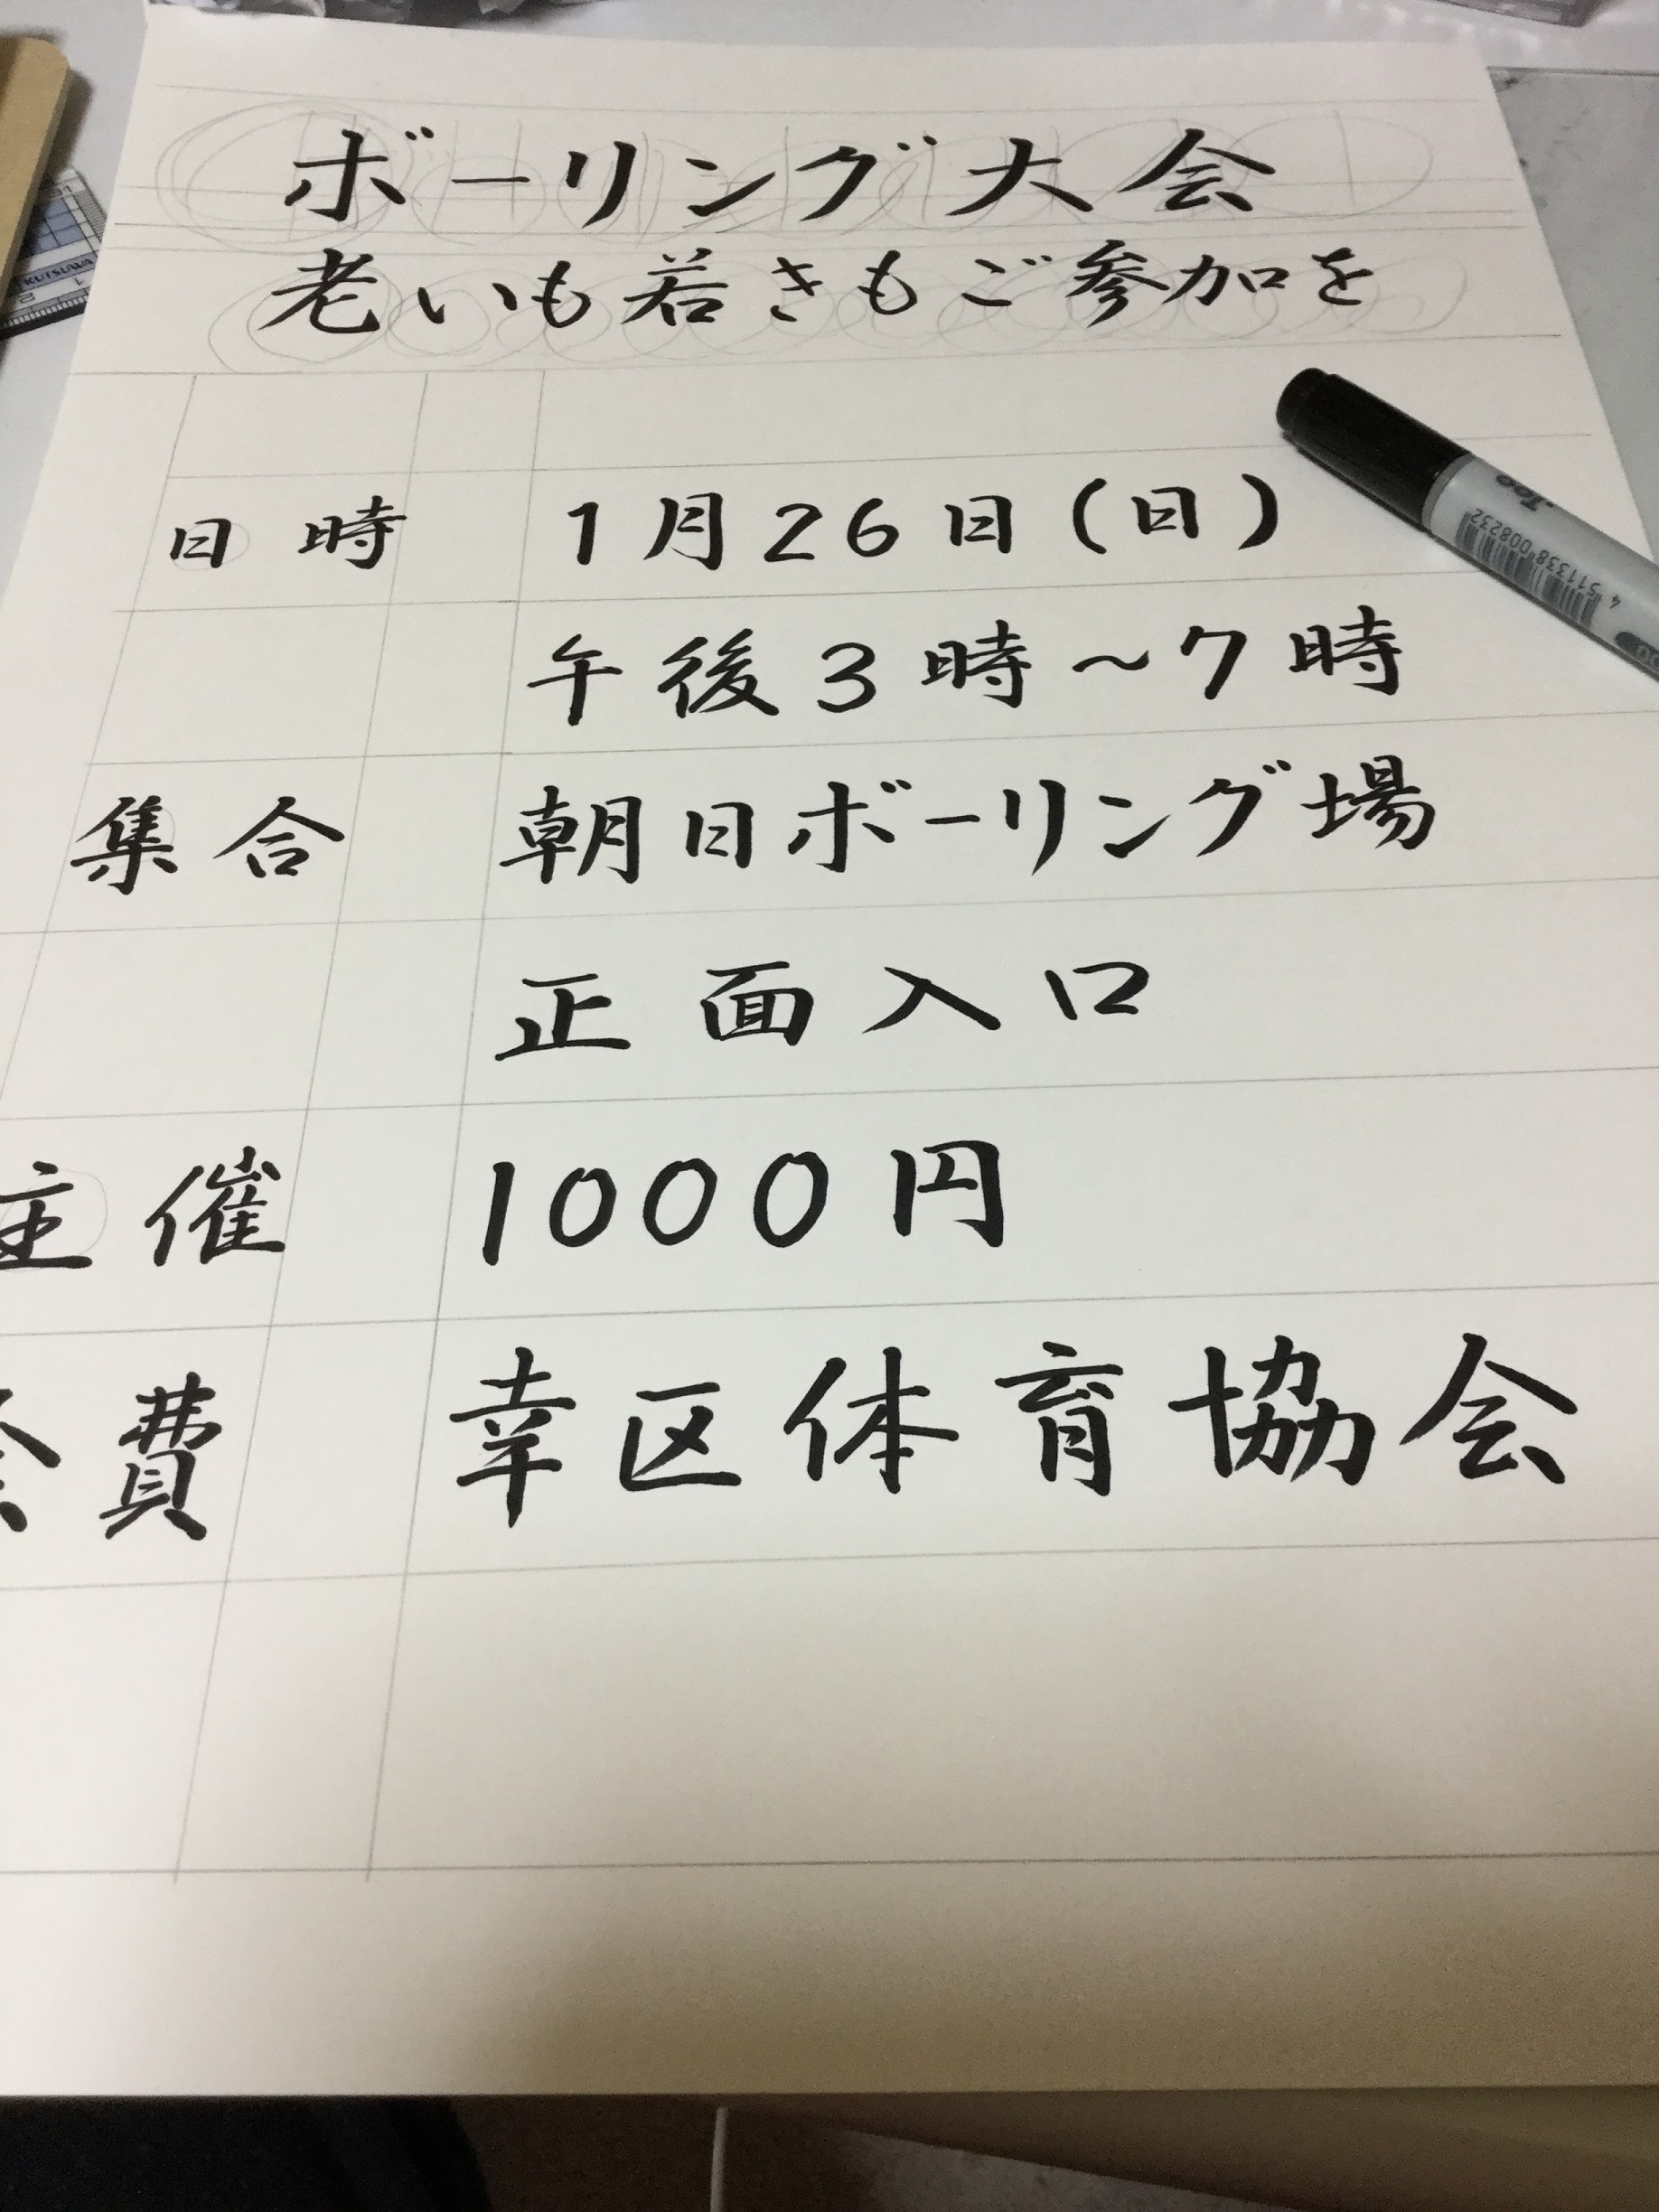 ボーリング大会
老いも若きもご参加を
日時 1月26日(日)
午後3時~7時
集合 朝日ボーリング場
正面入口
主催 1000円
会費 幸区体育協会
KUTSUWA
1 2
Too
4 511338 008232